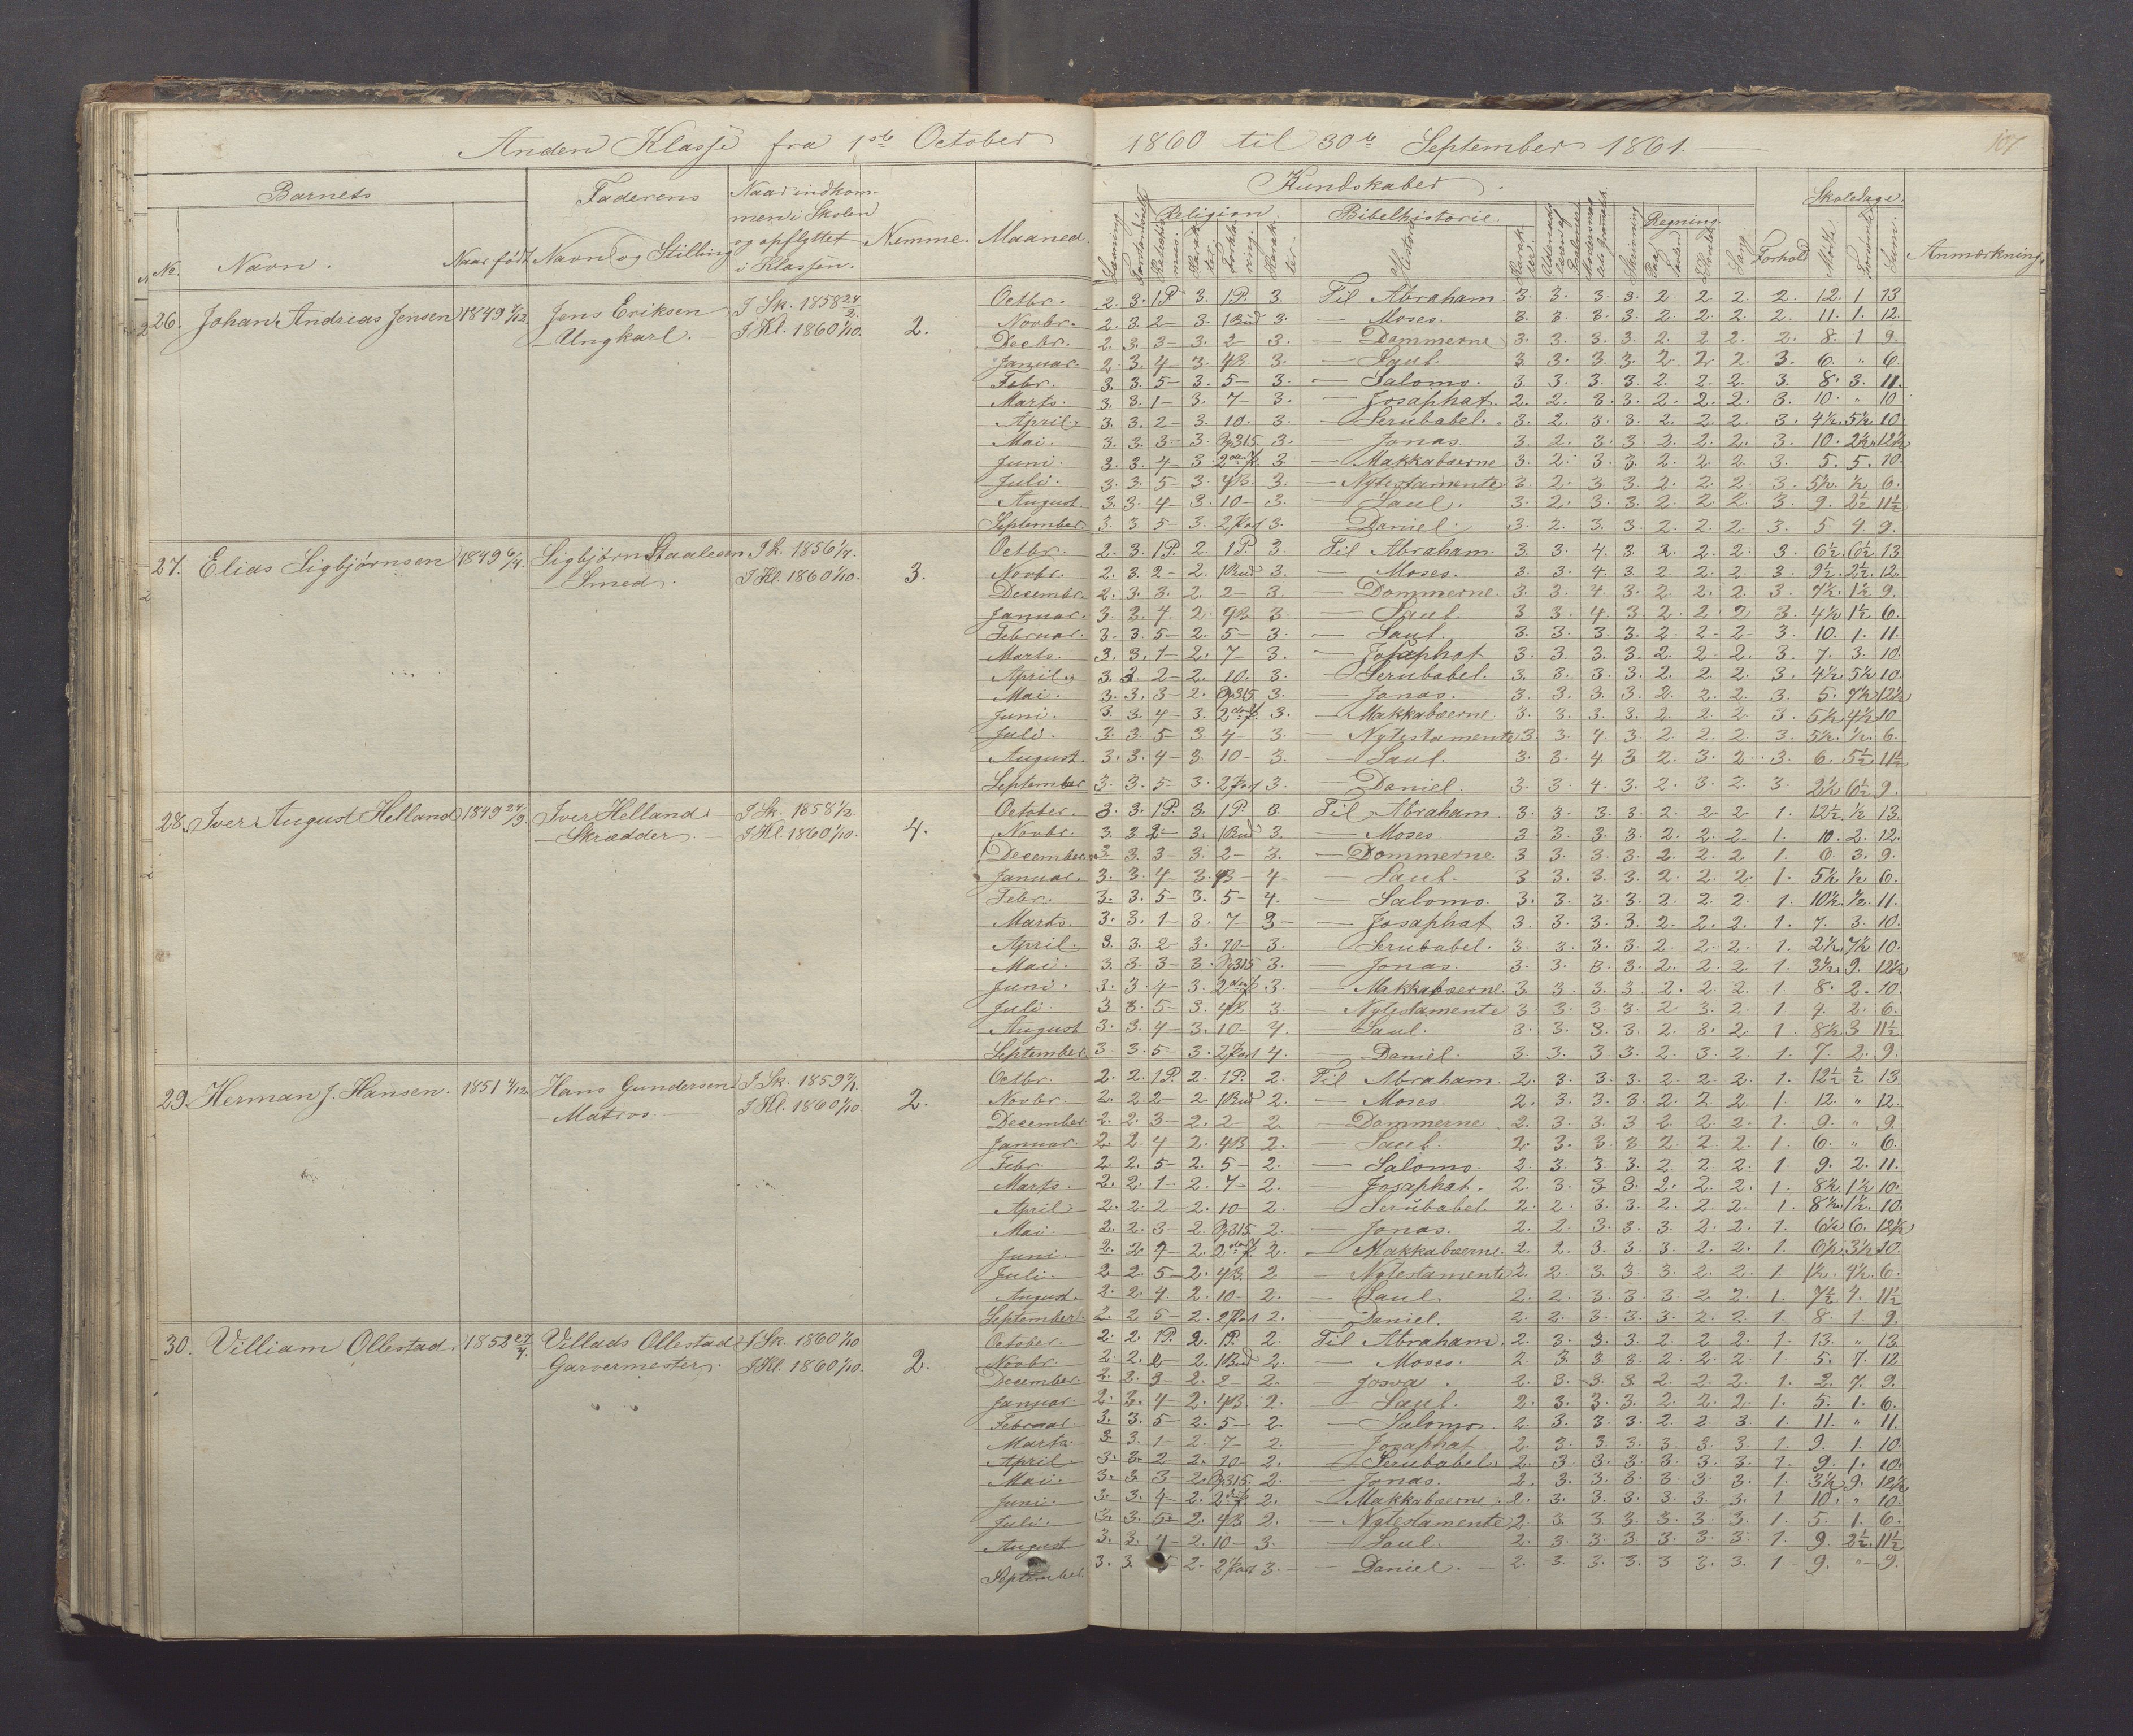 Anden Klasse fra 1ste October 1860 til 30te September 1861.
107
Barnets Faderens Naar indkommen i Skolen og opflyttet i Klassen. Nemme. Maaned. Kundskaber. Forhold Skoledage. Anmærkning.
No. Navn. Naar født Navn og Stilling Religion. Bibelhistorie. Regning Sang Mødte Forsømte Sum.
26. Johan Andreas Jensen 1849 Jens Eriksen I Sk. 1858 24/2.
Ungkarl. I Kl. 1860 1/10. 2.
Octbr. 2. 3. 1P. 3. 1P. 3. Til Abraham. 3. 3. 3. 3. 2. 2. 2. 2. 12. 1. 13
Novbr. 2. 3. 2- 3. 1Bud 3. — Moses. 3. 3. 3. 3. 2. 2. 2. 2. 11. 1. 12.
Decbr. 2. 3. 3- 3. 2- 3. — Dommerne 3. 3. 3. 3. 2. 2. 2. 2. 8. 1 9.
Januar. 2. 3. 4- 3. 4B. 3. — Saul. 3 3. 3. 3. 2 2. 2. 3. 6. " 6.
Febr. 3. 3. 5- 3. 5- 3. — Salomo. 3. 3. 3. 3. 2. 2. 2. 3. 8. 3. 11.
Marts. 3. 3. 1- 3. 7- 3. — Josaphat. 2. 2. 3. 3. 2. 2. 2. 3. 10. " 10
April. 3. 3. 2- 3. 10. 3. — Serubabel. 3. 2. 3. 3. 2. 2. 2. 3. 4½. 5½ 10.
Mai. 3. 3. 3- 3. 3. — Jonas 3. 2. 3. 3 2. 2. 2. 3. 10. 2½. 12½
Juni. 3. 3. 4- 3. 3. — Makkabæerne 3. 2. 3. 3. 2. 2. 2. 3. 5. 5. 10.
Juli. 3. 3. 5 3. 4B. 3. — Nytestamente 3. 2. 3. 3 2. 2. 2. 3. 5½. ½. 6.
August. 3. 3. 4- 3. 10- 3. — Saul. 3. 2. 3. 3. 2. 2. 2. 3. 9. 2½ 11½
September. 3. 3 5- 3. 2 3. Daniel. 3. 2. 3. 3. 2. 2. 2. 3. 5 4. 9.
27. Elias Sigbjørnsen 1849 Sigbjørn Staalesen I Sk. 1856
Smed. I Kl. 1860 1/10. 3.
Octbr. 2. 3. 1P. 2 1P. 3. Til Abraham. 3. 3. 4. 3. 2. 2. 2. 3. 6½. 6½ 13
Novbr. 2. 3. 2- 2. 1Bud 3. — Moses. 3. 3. 4. 3. 2. 2. 2. 3. 9½. 2½. 12.
Decembr. 2. 3. 3. 2 2- 3. — Dommerne. 3. 3. 4. 3. 2. 2. 2. 3. 7½. 1½ 9.
Januar. 3. 3. 4. 2. 3. — Saul. 3 3. 4. 3. 2. 2. 2 3. 4½ 1½ 6.
Februar. 3. 3. 5- 2. 5- 3. — Saul. 3. 3. 3. 3. 2. 2- 2- 3. 10. 1. 11.
Marts. 3. 3. 1- 2. 7- 3. — Josaphat 3. 3. 3. 3. 2. 2. 2. 3. 7. 3. 10.
April. 3. 3. 2- 2. 10. 3. — Serubabel. 3. 3. 3. 3. 2. 2. 2. 3. 4½. 5½ 10.
Mai. 3. 3. 3- 2. 3. — Jonas. 3. 3. 3. 3. 2. 2. 2. 3. 5. 7½ 12½
Juni. 3. 3. 4- 3. 3. — Makkabæerne. 3. 3. 3. 3. 2. 2. 2. 3. 5½. 4½ 10
Juli. 3. 3. 5 3 4- 3. — Nytestamente 3. 3. 4. 3. 2. 2. 2 3. 5½. ½. 6.
August. 3. 3. 4- 3. 10- 3. — Saul. 3. 3. 4. 3. 2. 3. 2. 3. 6. 5½ 11½
September 3. 3. 5- 3. 2 3. — Daniel. 3. 3. 4. 3. 2. 3. 2. 3. 2½ 6½ 9.
28. Iver August Helland 1849 24/9. Iver Helland I Sk. 1858 1/2.
Skrædder. I Kl. 1860 1/10. 4.
October. 3. 3. 1P. 3. 1P. 3. Til Abraham. 3. 3. 3. 3. 2. 2. 2 1. 12½. ½ 13.
Novbr. 3. 3. 2- 3. 1Bud 3. — Moses 3. 3. 3. 3. 2. 2. 2. 1. 10. 2. 12.
December. 3. 3. 3- 3. 2- 3. — Dommerne. 3 3. 3. 3. 2. 2. 2 1. 6. 3. 9.
Januar. 3. 3. 4- 3. 4B- 4- — Saul. 3 3. 3. 3. 2. 2. 2. 1. 5½ ½ 6.
Febr. 3. 3. 5- 3. 5- 4. — Salomo. 3. 3. 3. 3. 2. 2. 2. 1. 10½. ½. 11.
Marts. 3. 3. 1- 3. 7- 3- — Josaphat 3. 3. 3. 3. 2. 2. 2. 1. 7. 3. 10.
April. 3. 3. 2- 3. 10- 3. — Serubabel. 3. 3. 3. 3. 2. 2. 2. 1. 2½. 7½ 10.
Mai. 3. 3. 3- 3. 3. — Jonas. 3. 3. 3. 3. 2. 2. 2. 1. 3½. 9. 12½
Juni. 3. 3. 4- 3. 3. — Makkabæerne. 3. 3. 3. 3. 2. 2. 2. 1. 8. 2. 10.
Juli. 3. 3. 5- 3. 4B 3. — Nytestamente 3 3. 3. 3. 2. 3. 2. 1 4. 2. 6.
August 3. 3. 4- 3. 10- 4. — Saul. 3. 3. 3. 3. 2. 3. 2 1. 8½ 3 11½
September. 3. 3. 5- 3. 2 4. — Daniel. 3. 3. 3. 3. 2. 3. 2. 1. 7. 2. 9.
29. Herman J. Hansen. 1851 Hans Gundersen I Sk. 1859
Matros. I Kl. 1860 1/10. 2.
Octbr. 2. 2. 1P. 2. 1P. 2. Til Abraham. 2. 3. 3. 3. 2. 2. 2. 1. 12½ ½ 13.
Novbr. 2. 2. 2- 2 1Bud 2. — Moses. 2. 3. 3. 3. 2. 2. 2. 1. 12. " 12.
December. 2. 2. 3- 2. 2- 2 — Dommerne 2. 3. 3. 3 2. 2. 2. 1. 9. " 9.
Januar. 2. 2. 4- 2. 4B 2. — Saul. 2. 3. 3. 3. 2. 2. 2. 1. 6. " 6.
Febr. 2. 2. 5- 2. 5- 2. — Salomo. 2. 3. 3. 3. 2. 2. 2. 1. 9. 2. 11.
Marts. 2. 2. 1- 2. 7- 2. — Josaphat. 2. 3. 3. 3. 2. 2. 2. 1. 8½. 1½ 10.
April 2. 2. 2- 2. 10- 2. — Serubabel. 2. 2. 3. 3. 2. 2. 2. 1. 8½. 1½. 10.
Mai. 2. 2. 3- 2. 2. — Jonas. 2. 2. 3. 3. 3. 2. 2. 1. 6½ 6. 12½
Juni. 2. 2. 4- 2. 2. — Makkabæerne. 2. 2. 3. 3. 3. 2. 2. 1. 6½. 3½ 10.
Juli. 2. 2. 5- 2. 4B. 2. — Nytestamente 2. 2. 3. 3. 3. 2. 2. 1. 1½. 4½. 6.
August. 2. 2. 4. 2. 10- 2. — Saul. 2. 2. 3. 3. 3. 2. 2. 1. 7½. 4. 11½
September. 2. 2 5- 2. 2 2. Daniel. 2. 2. 3. 3. 3. 2. 2. 1. 8. 1. 9.
30. Villiam Ollestad. 1852 27/4. Villads Ollestad I Sk. 1860 1/10
Garvermester. I Kl. 1860 1/10. 2.
October. 2. 2. 1P. 2. 1P. 2. Til Abraham. 2. 3. 3. 3. 2. 2. 2. 1. 13. " 13.
Novbr. 2. 2. 2- 2. 1Bud 2. — Moses. 2. 3. 3. 3. 2. 2. 2. 1. 5. 7. 12
December. 2. 2. 3- 2. 2- 2. — Josva. 2. 3. 3. 3. 2. 2. 2. 1. 2. 7. 9.
Januar. 2. 3. 4- 2. 4B. 2. — Saul. 2. 3. 3. 3. 2. 2. 2. 1. 5. 1. 6.
Februar 3. 3. 5- 2. 5- 2. — Salomo. 2. 3. 3. 3. 2. 2. 3. 1. 11. " 11.
Marts. 3. 3. 1- 2. 7- 2. — Josaphat 2. 3. 3. 3. 3. 3. 3. 1. 9. 1. 10.
April. 3. 3. 2- 2. 10- 2. — Serubabel. 2. 3. 3. 3. 3. 3. 3. 1. 9. 1. 10.
Mai. 3. 3. 3- 2. 2. — Jonas. 2. 3. 3. 3. 3. 3. 3. 1. 3½ 9. 12½
Juni. 3. 3. 4- 2. 2. — Makkabæerne. 2. 3. 3. 3. 3. 3. 3. 1. 10. " 10.
Juli. 3. 3. 5- 2. 4B 2. — Nytestamente 2. 3. 3. 3. 3. 3. 3. 1. 5. 1. 6.
August 3. 3. 4- 2. 10- 3. — Saul. 2. 3. 3. 3. 3. 3. 3. 1. 9. 2½. 11½
September. 3. 3. 5 2. 2 3. — Daniel. 2. 3. 3. 3. 3. 3. 3. 1. 9. " 9.